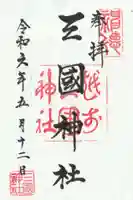 奉拝
三國神社
越前
神社
令和六年五月十二日